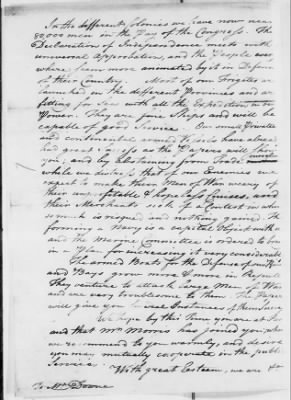 In the different Colonies we have now near
80,000 men in the Pay of the Congress. The
Declaration of Independance meets with
universal Approbation, and the People every
where seem more animated by it in Defence
of their Country. Most of our Frigates are
launched in the different Provinces and are
fitting for Sea with all the Expedition in our
Power. They are fine Ships and will be
capable of good Service. Our small Privateers
and continental armed Vessels have already
had great Success as the Papers will shew
you; and by abstaining from Trade ourselves
while we distress that of our Enemies we
expect to make their Men of War weary of
their unprofitable & hope less Cruises, and
their Merchants sick of a Contest in which
so much is risqued and nothing gained. The
forming a Navy is a capital Object with us
and the Marine Committee is ordered to bring
in a Plan for increasing it very considerably.
The armed Boats for the Defence of our
and Bays grow more & more in Repute.
They venture to attack large Men of War
and are very troublesome to them. The Papers
will give you several Instances of their Success.
We hope by this Time you are at
and that Mr. Morris has joined you, whom
we recommend to you warmly, and desire
you may mutually cooperate in the public
Service. With great Esteem, we are &c
To Mr. Deane